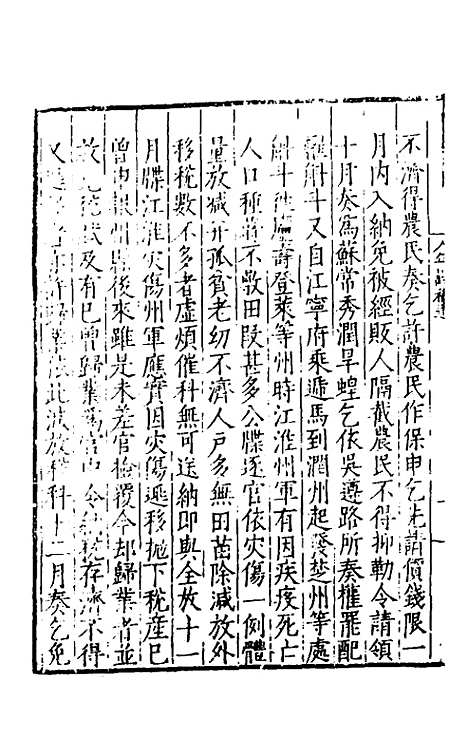 不濟得農民奏乞許農民作保申乞先請價錢限一
月内入納免被經販人隔截農民不得抑勒令請領
十月奏爲蘇常秀潤旱蝗乞依吳遵路所奏權罷配
糴斛斗又自江寧府乘遞馬到潤州起發楚州等處
斛斗往廬壽登萊等州時江淮州軍有因疾疫死亡
人口種蒔不敷田段甚多公牒逐官依灾傷一例體
量放減并孤貧老幼不濟人戸多無田苗除減放外
移稅數不多者虚煩催科無可送納即與全放十一
月牒江淮灾傷州軍應實因灾傷逃移抛下稅産已
曾申報州縣後來雖是未差官檢覆今却歸業者並
放免稅賦及有已曾歸業爲官中令納稅存濟不得
又逃者亦許歸業依此減放稅科十二月奏乞免